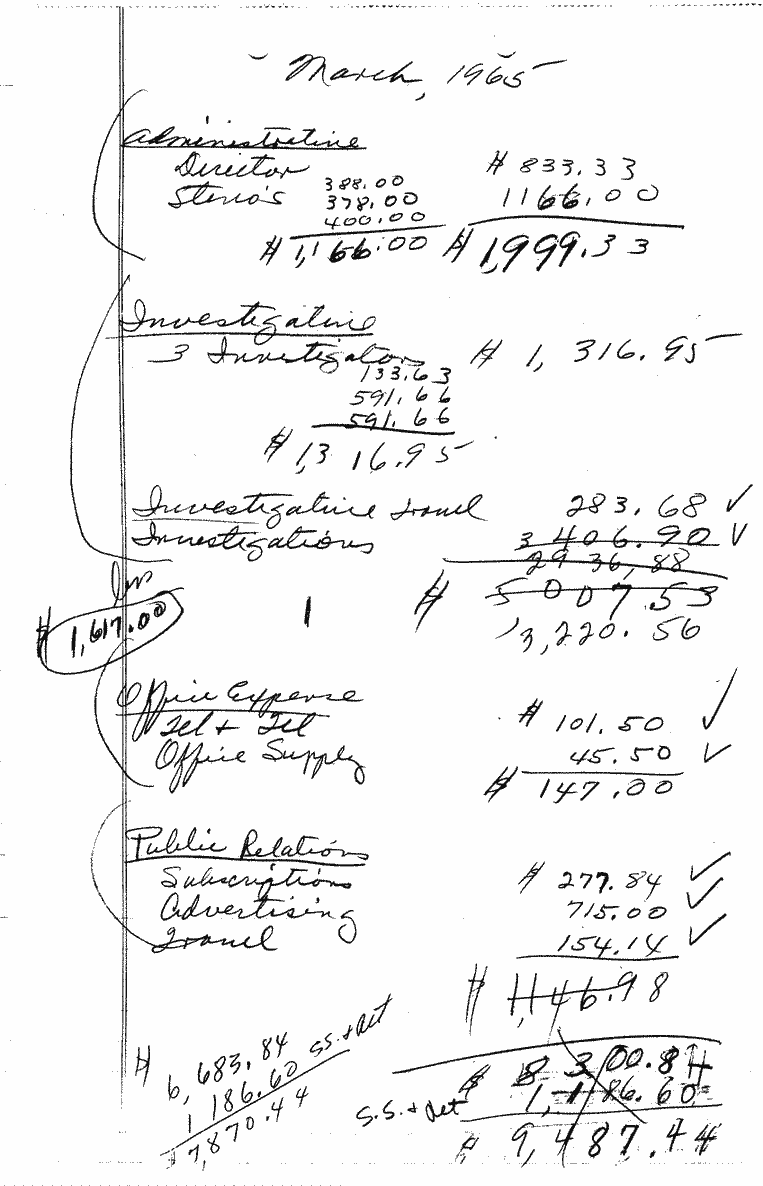 March, 1965
Administrative
Director $ 833.33
Steno's 388.00 1166.00
378.00
400.00
$ 1,166.00 $ 1,999.33
Investigative
3 Investigators $ 1,316.95
133.63
591.66
591.66
$ 1,316.95
Investigative Travel 283.68 ✓
Investigations 3 406.90 ✓
2936.88
less
$ 1,617.00 $ 5007.53
3,220.56
Office Expense
Tel & Tel $ 101.50 ✓
Office Supply 45.50 ✓
$ 147.00
Public Relations
Subscriptions $ 277.84 ✓
Advertising 715.00 ✓
Travel 154.14 ✓
$ 1,146.98
$ 6,683.84 $ 8 300.84
1 186.60 S.S. + Ret S.S. + Ret 1,186.60
$ 7,870.44 $ 9,487.44